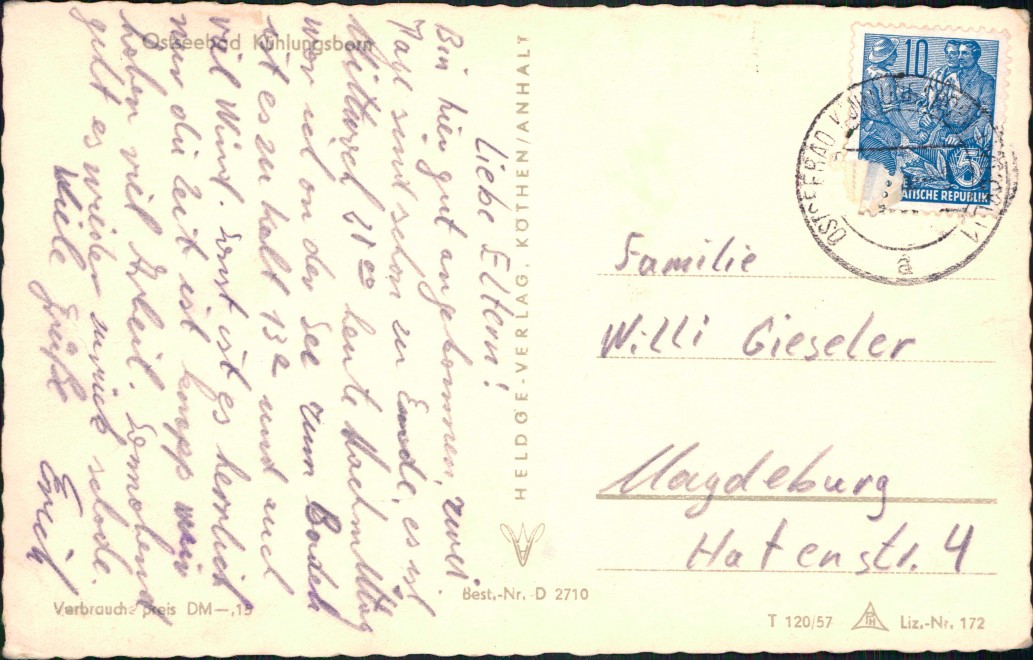 Ostseebad Kühlungsborn
Liebe Eltern!
Bin hier gut angekommen, zwei
Tage sind schon zu Ende, es ist
Mittwoch 11 00 heute Nachmittag
war ich an der See zum Baden
ist es zu kalt 13 und auch
viel Wind. Sonst ist es herrlich
nur die Zeit ist knapp wir
haben viel Arbeit. Sonnabend
geht es wieder zurück schade.
Viele Grüße
Erich
HELDGE-VERLAG, KÖTHEN/ANHALT
Verbraucherpreis DM –,15
Best.-Nr. D 2710
10
5
ATISCHE REPUBLIK
OSTSEEBAD
a
Familie
Willi Gieseler
Magdeburg
Hafenstr. 4
T 120/57
Liz.-Nr. 172